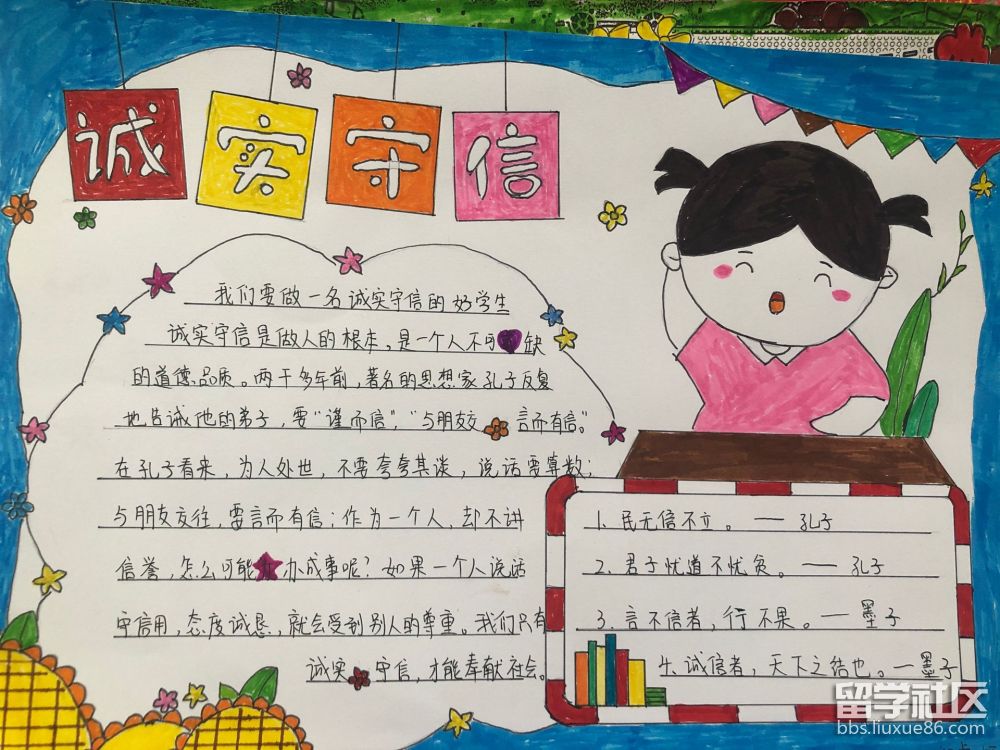 诚实守信
我们要做一名诚实守信的好学生
诚实守信是做人的根本,是一个人不可缺
的道德品质。两千多年前,著名的思想家孔子反复
地告诫他的弟子,要“谨而信”,“与朋友交 言而有信”。
在孔子看来,为人处世,不要夸夸其谈,说话要算数;
与朋友交往,要言而有信;作为一个人,却不讲
信誉,怎么可能 办成事呢?如果一个人说话
守信用,态度诚恳,就会受到别人的尊重。我们只有
诚实 守信,才能奉献社会。
1.民无信不立。——孔子
2.君子忧道不忧贫。——孔子
3.言不信者,行不果。—墨子
4.诚信者,天下之结也。—墨子
留学社区
bbs.liuxue86.com